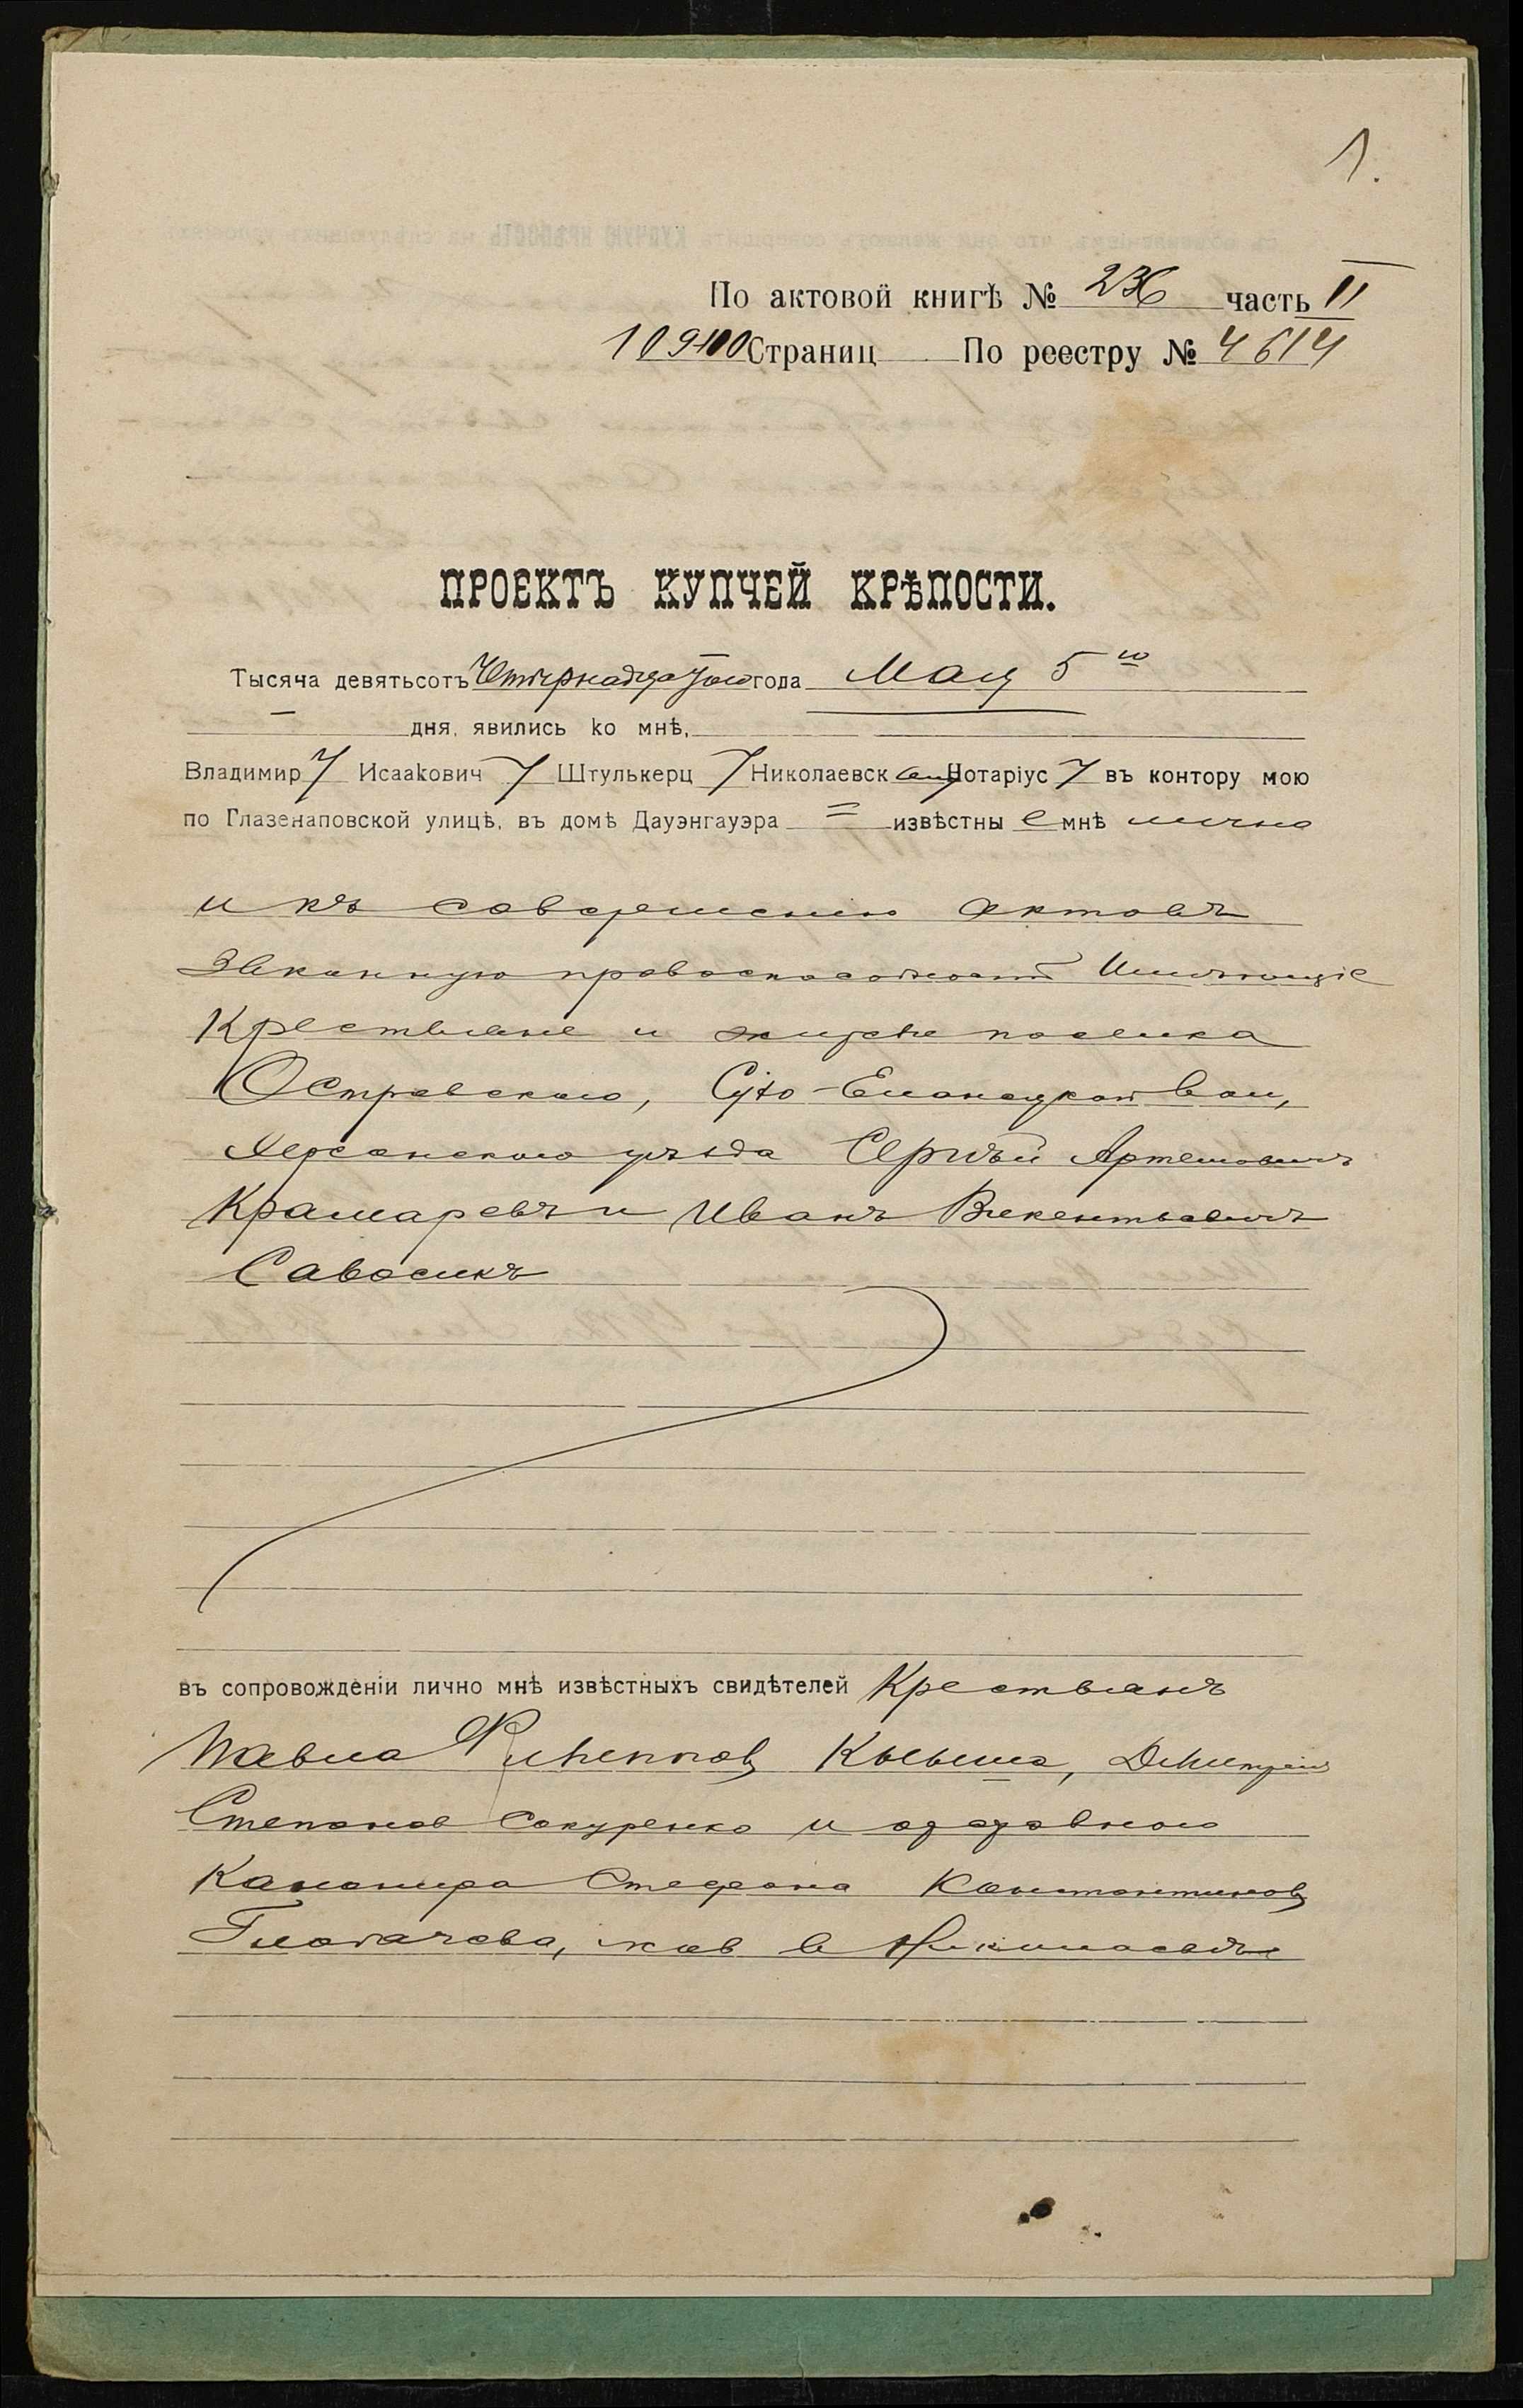 1.
По актовой книгѣ № 236 часть II
109-100 Страниц По реестру № 4614
ПРОЕКТЪ КУПЧЕЙ КРѢПОСТИ.
Тысяча девятьсотъ Четырнадцатого года Мая 5го
дня, явились ко мнѣ,
Владимир Исаакович Штулькерц Николаевск Нотаріус въ контору мою
по Глазенаповской улицѣ, въ домѣ Дауэнгауэра извѣстные мнѣ лично
и къ совершенію актовъ
законную правоспособность Имѣющіе
Крестьяне и поселка
Островского, вол,
Херсонского уѣзда Сергѣй Артемовичъ
Крамаревъ и Иванъ Викентьевичъ
Савосикъ
въ сопровожденіи лично мнѣ извѣстныхъ свидѣтелей Крестьянъ
Павла Дмитрія
Степанов Сокуренко и отставного
Канонира Стефана Константинов
жив в Николаевѣ